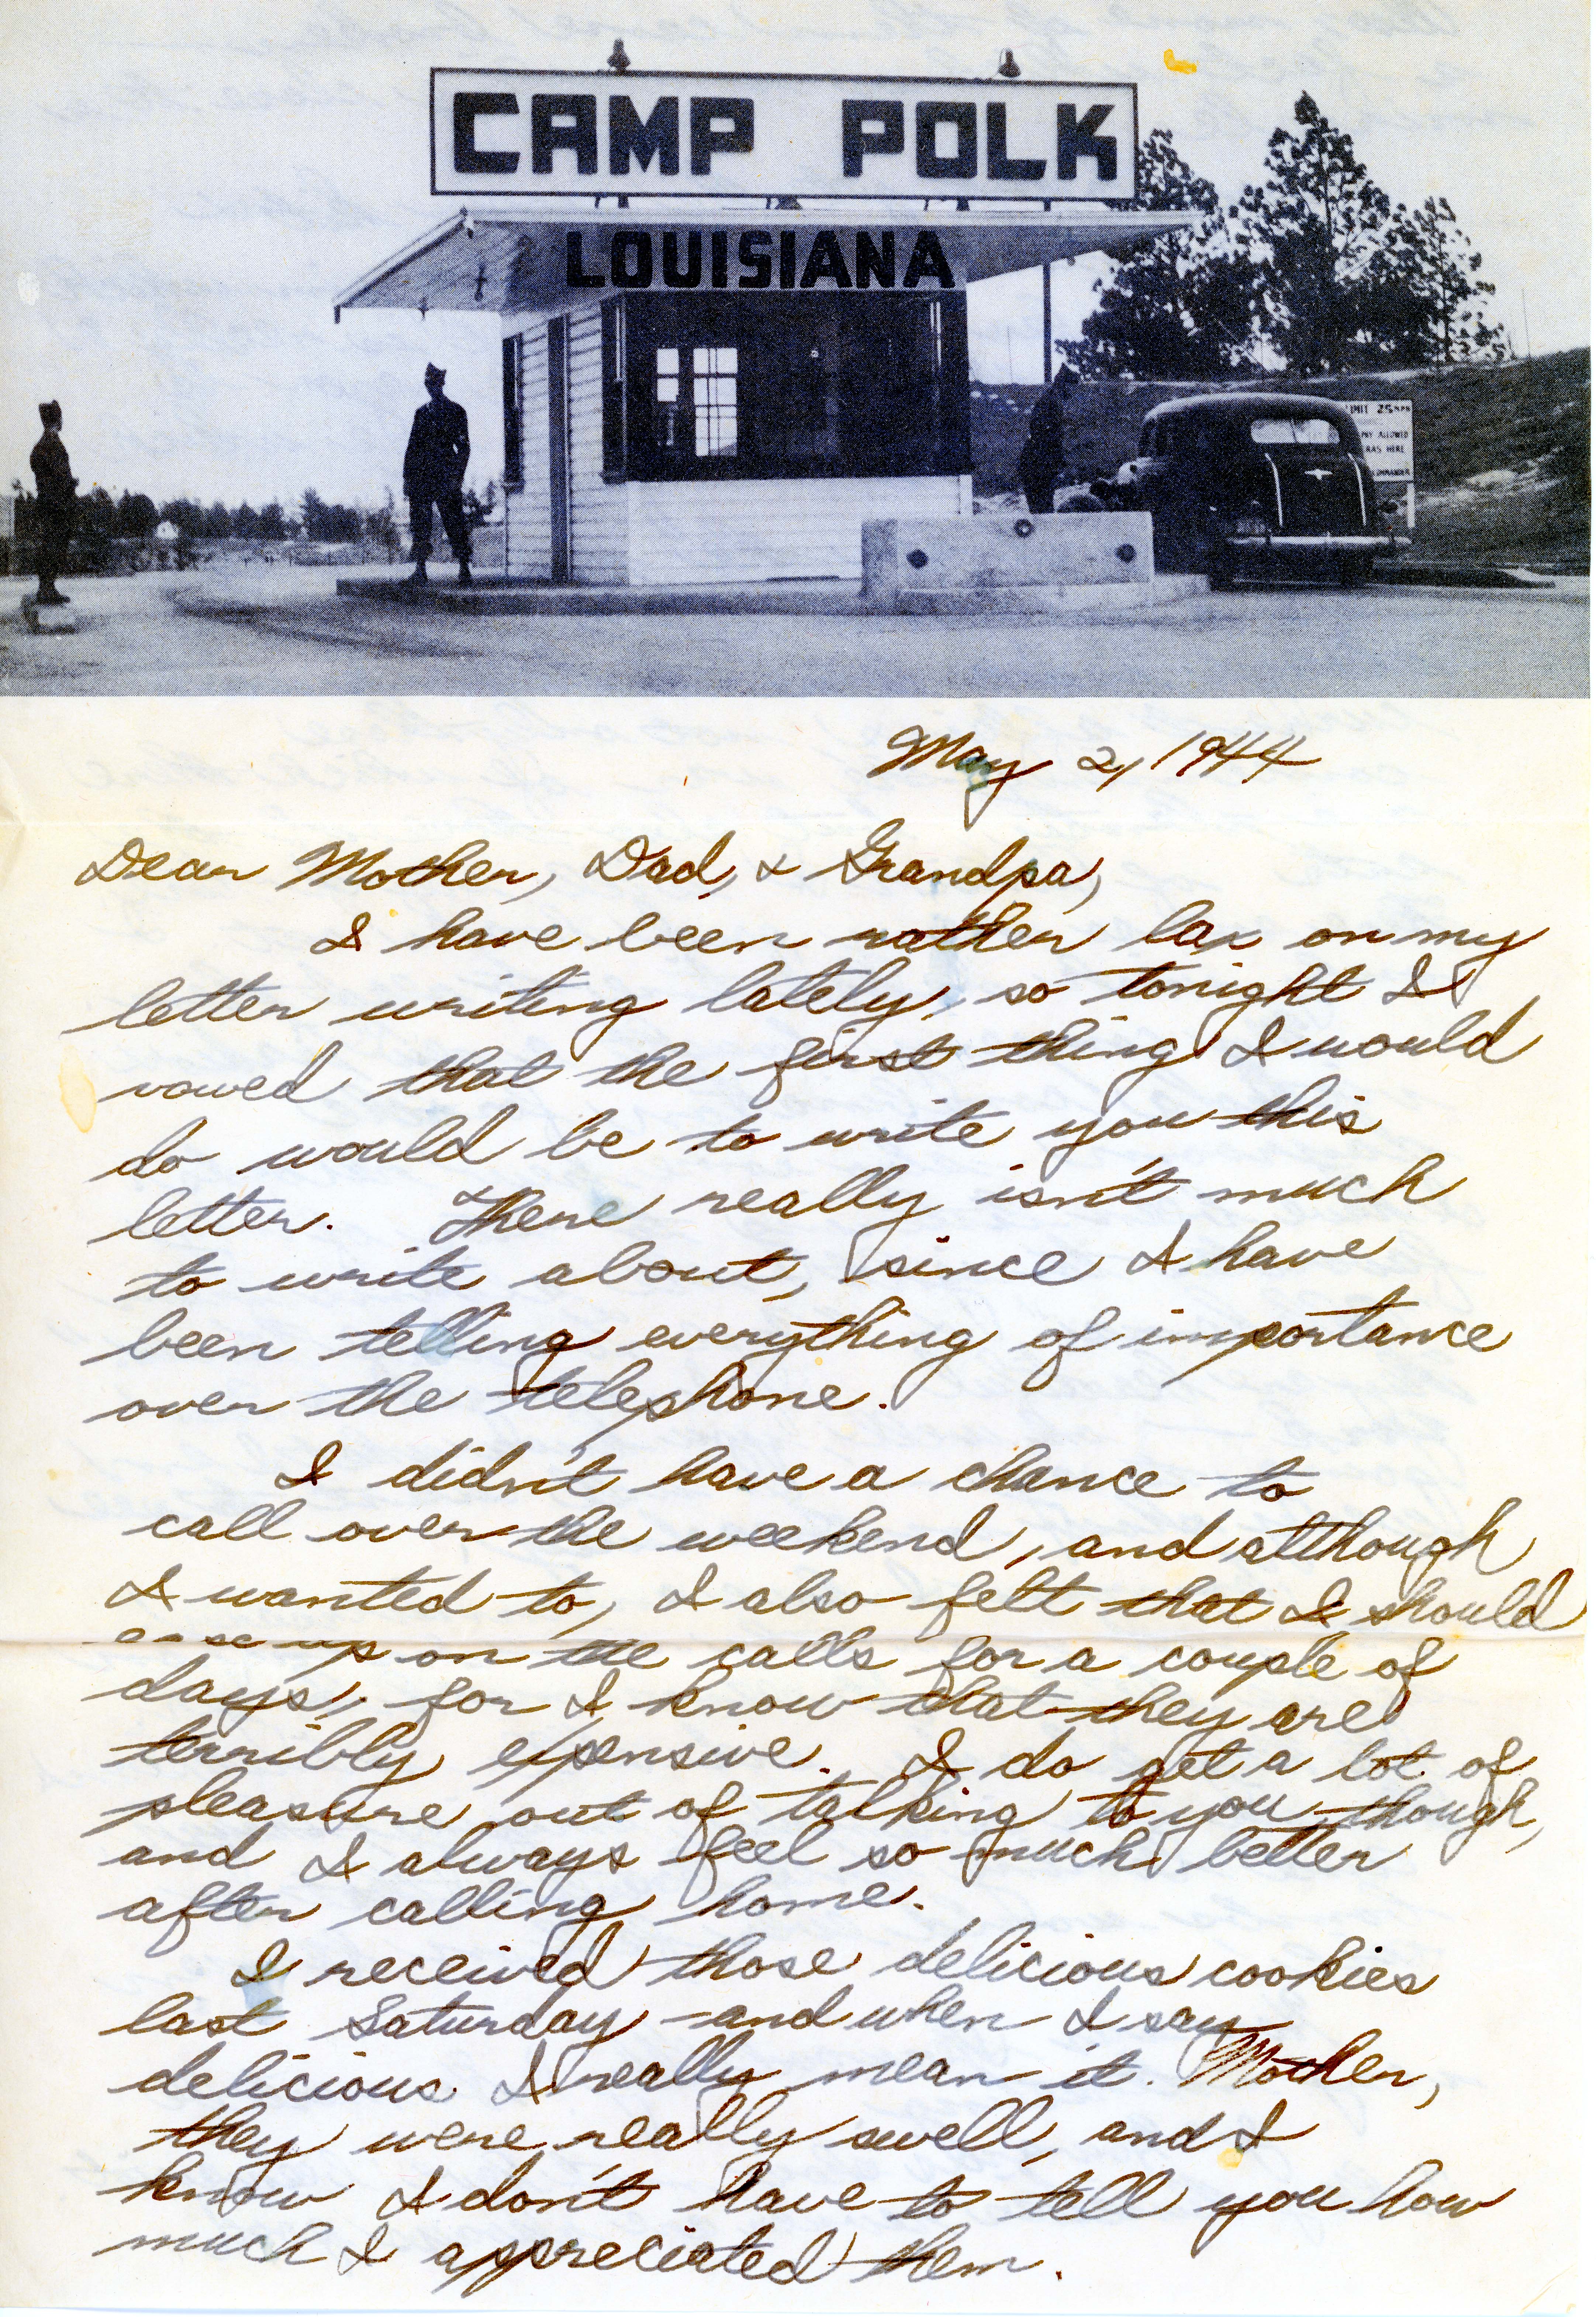 CAMP POLK
LOUISIANA
LIMIT 25 MPH
ALLOWED
HERE
COMMANDER
May 2, 1944
Dear Mother, Dad, & Grandpa,
I have been rather lax on my
letter writing lately, so tonight I
vowed that the first thing I would
do would be to write you this
letter. There really isn't much
to write about, since I have
been telling everything of importance
over the telephone.
I didn't have a chance to
call over the weekend, and although
I wanted to, I also felt that I should
ease up on the calls for a couple of
days, for I know that they are
terribly expensive. I do get a lot of
pleasure out of talking to you though,
and I always feel so much better
after calling home.
I received those delicious cookies
last Saturday - and when I say
delicious I really mean it. Mother,
they were really swell, and I
know I don't have to tell you how
much I appreciated them.